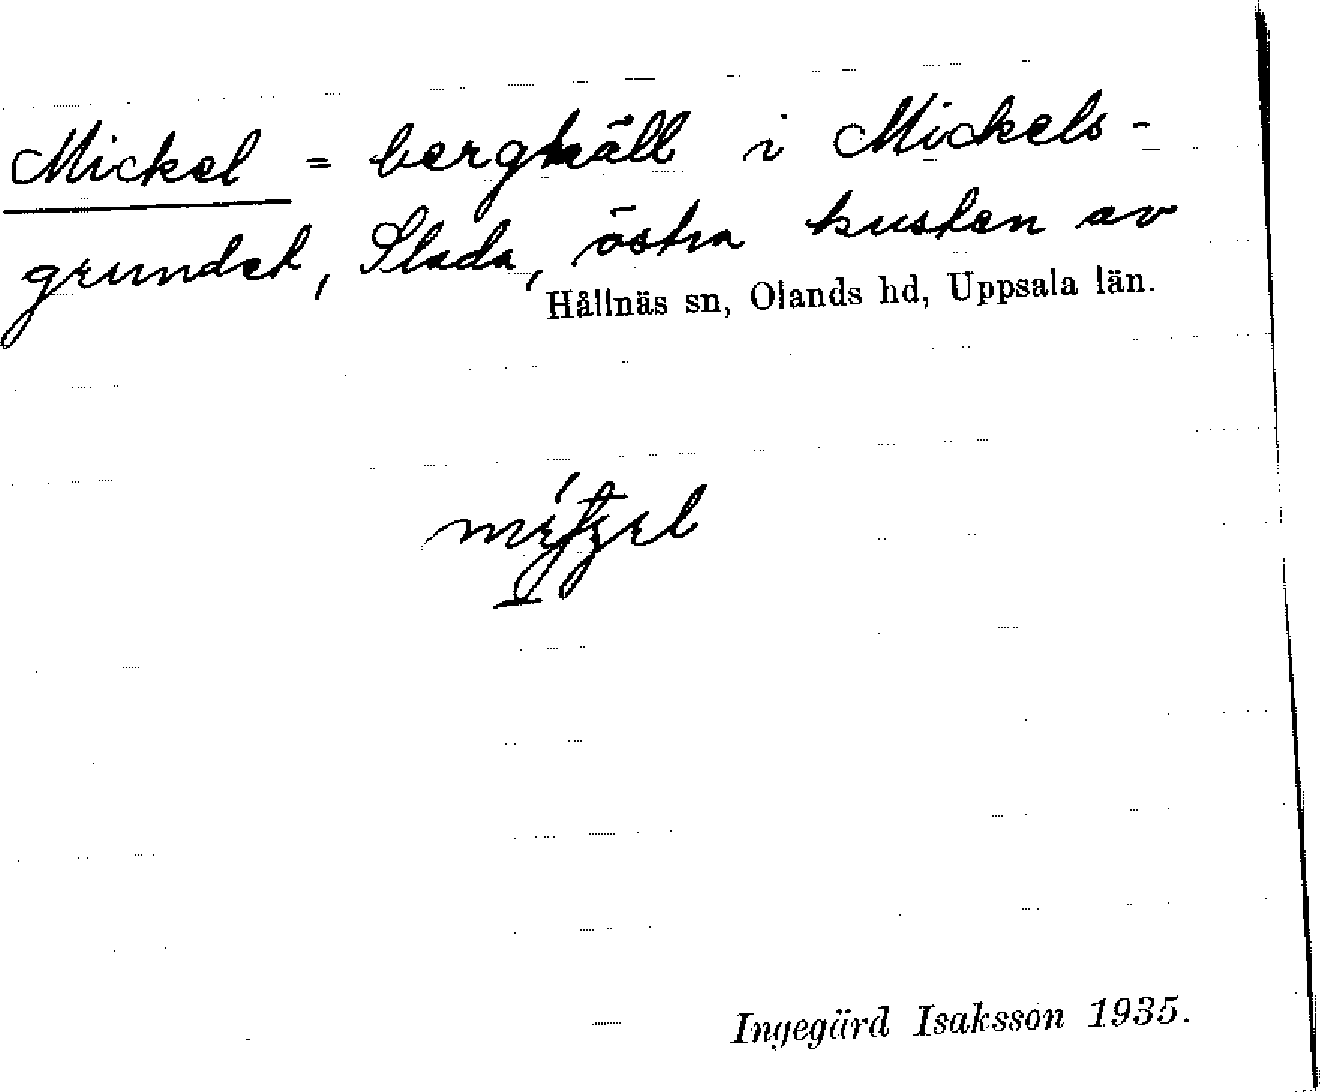 Mickel = berghäll i Mickels-
grundet, Slada, östra kusten av
Hållnäs sn, Olands hd, Uppsala län.
Ingegärd Isaksson 1935.